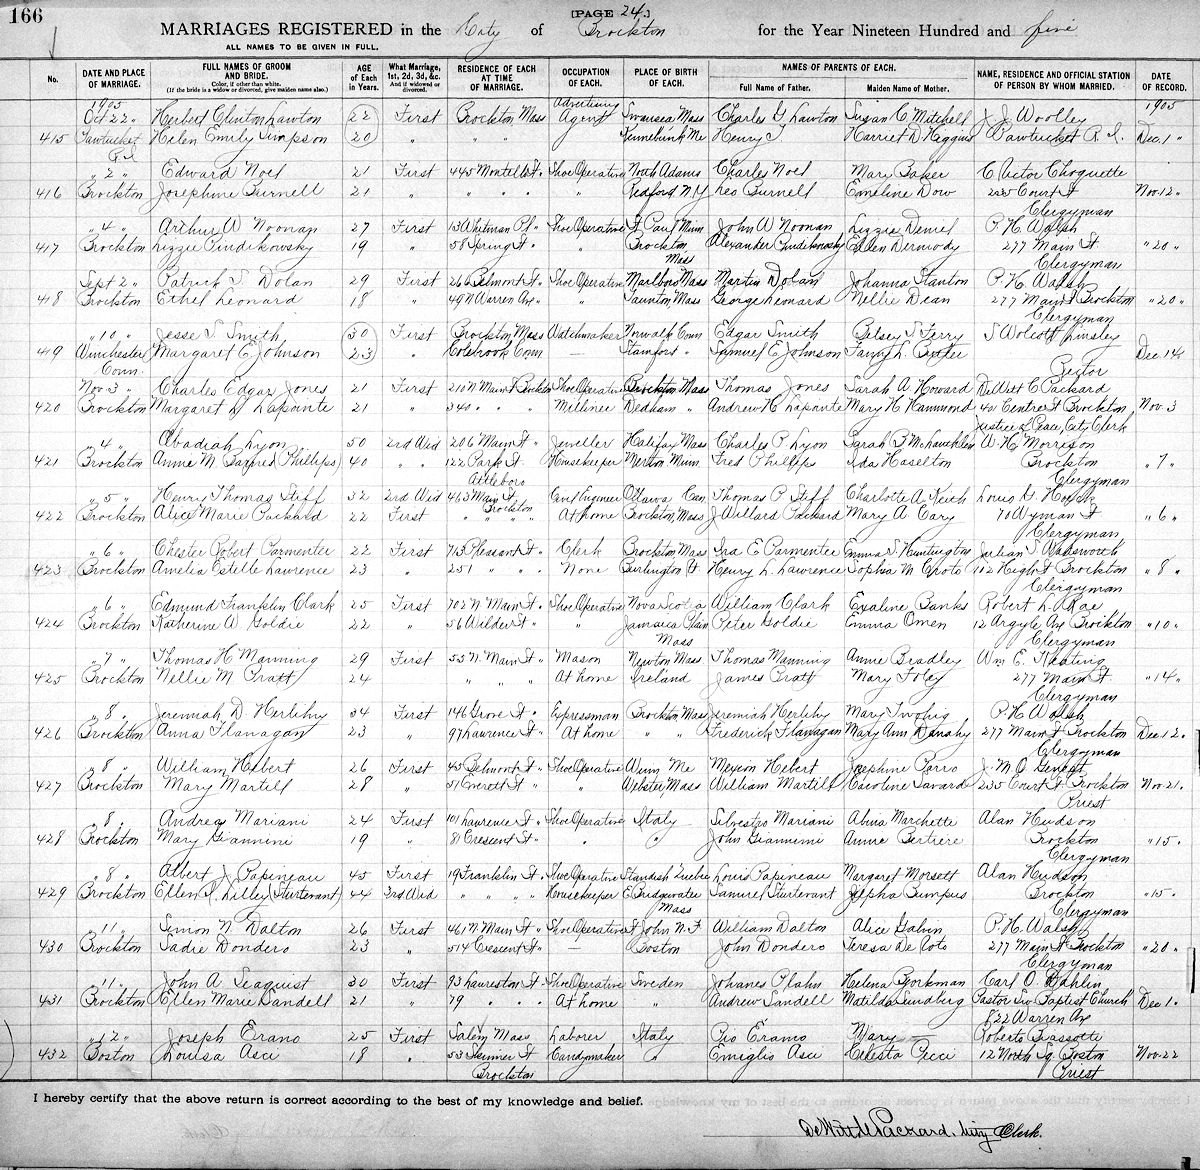 166
[PAGE 24.]
MARRIAGES REGISTERED in the City of Brockton for the Year Nineteen Hundred and five
ALL NAMES TO BE GIVEN IN FULL.
No. DATE AND PLACE OF MARRIAGE. FULL NAMES OF GROOM AND BRIDE. Color, if other than white. (If the bride is a widow or divorced, give maiden name also.) AGE of Each in Years. What Marriage, 1st, 2d, 3d, &c. And if widowed or divorced. RESIDENCE OF EACH AT TIME OF MARRIAGE. OCCUPATION OF EACH. PLACE OF BIRTH OF EACH. NAMES OF PARENTS OF EACH. Full Name of Father. Maiden Name of Mother. NAME, RESIDENCE AND OFFICIAL STATION OF PERSON BY WHOM MARRIED. DATE OF RECORD.
1905 Advertising 1905
Oct 22 " Herbert Clinton Lawton 22 First Brockton Mass Agent Swansea Mass Charles G Lawton Susan C Mitchell J. J. Woolley
415 Pawtucket Helen Emily Simpson 20 " " " Kennebunk Me Henry Harriet D Higgins Pawtucket R. I. Dec. 1 "
R I
" 2 " Edward Noel 21 First 445 Montello St. Shoe Operative North Adams Charles Noel Mary Baker C Victor Choquette
416 Brockton Josephine Burnell 21 " " " " " Redford N.Y Leo Burnell Emeline Dow 235 Court St Nov. 12 "
Clergyman
" 4 " Arthur W Noonan 27 First 13 Whitman Pl " Shoe Operative St Paul Minn John A Noonan Lizzie Deniel P. H. Walsh
417 Brockton Lizzie Pindikowsky 19 " 58 Spring St. " " Brockton Alexander Pindikowsky Ellen Dermody 277 Main St " 20 "
Mass Clergyman
Sept 2 " Patrick S Dolan 29 First 26 Belmont St " Shoe Operative Marlboro Mass Martin Dolan Johanna Stanton P. H. Walsh
418 Brockton Ethel Leonard 18 " 49 N Warren Av " " Taunton, Mass George Leonard Nellie Dean 277 Main St Brockton " 20 "
Clergyman
" 10 " Jesse S Smith 30 First Brockton, Mass Watchmaker Norwalk Conn Edgar Smith Betsey S Ferry S Wolcott Linsley
419 Winchester Margaret E Johnson 23 " Colebrook Conn — Stamford " Samuel E Johnson Fanny L. Butler Dec 14 "
Conn. Rector
Nov. 3 " Charles Edgar Jones 21 First 210 N Main St Brockton Shoe Operative Brockton Mass Thomas Jones Sarah A Howard DeWitt C Packard
420 Brockton Margaret L Lapointe 21 " 340 " " " Milliner Dedham " Andrew H Lapointe Mary H Hammond 40 Centre St Brockton Nov. 3
Justice of Peace, City Clerk
" 4 " Obadiah Lyon 50 2nd Wid 206 Main St " Jeweller Halifax Mass Charles P Lyon Sarah B McLauthlen W. H. Morrison
421 Brockton Annie M Barnes (Phillips) 40 " " 122 Park St. Housekeeper Merton Minn Fred Phillips Ida Haselton Brockton " 7 "
Attleboro Clergyman
" 5 " Henry Thomas Stiff 32 2nd Wid 463 Main St. Civil Engineer Ottawa Can. Thomas P. Stiff Charlotte A Keith Louis G. Houck
422 Brockton Alice Marie Packard 22 First " " Brockton " " At home Brockton, Mass J Willard Packard Mary A Cary 70 Wyman St " 6 "
Clergyman
" 6 " Chester Robert Parmenter 22 First 713 Pleasant St " Clerk Brockton Mass Ira E Parmenter Emma S Huntington Julian S Wadsworth
423 Brockton Amelia Estelle Lawrence 23 " 251 " " " None Burlington Vt. Henry L. Lawrence Sophia M Croto 112 High St Brockton " 8 "
Clergyman
" 6 " Edmund Franklin Clark 25 First 702 N Main St. Shoe Operative Nova Scotia William Clark Evaline Banks Robert L. Rae
424 Brockton Katherine W Goldie 22 " 56 Wilder St " " Jamaica Plain Peter Goldie Emma Omen 12 Argyle Av Brockton " 10 "
Mass Clergyman
" 7 " Thomas H Manning 29 First 55 N. Main St " Mason Newton Mass Thomas Manning Annie Bradley Wm E. Keating
425 Brockton Nellie M Pratt 24 " " " " At home Ireland James Pratt Mary Foley 277 Main St. " 14 "
Clergyman
" 8 " Jeremiah D Herlihy 34 First 146 Grove St. " Expressman Brockton Mass Jeremiah Herlihy Mary Twohig P. H Walsh
426 Brockton Anna Flanagan 23 " 97 Lawrence St " At home " " Frederick Flanagan Mary Ann Danahy 277 Main St Brockton Dec 12 "
Clergyman
" 8 " William Hebert 26 First 45 Belmont St " Shoe Operative Winn Me Mexion Hebert Josephine Parro J. M. O Genest
427 Brockton Mary Martell 28 " 51 Everett St " " Webster, Mass William Martell Caroline Savard 235 Court St Brockton Nov 21.
Priest
" 8 " Andrea Mariani 24 First 101 Lawrence St " Shoe Operative Italy Silvestro Mariani Alvina Marchette Alan Hudson
428 Brockton Mary Giannini 19 " 81 Crescent St " " " John Giannini Annie Bertiere Brockton " 15 "
Clergyman
" 8 " Albert J. Papineau 45 First 19 Franklin St. Shoe Operative Standish Quebec Louis Papineau Margaret Morsett Alan Hudson
429 Brockton Ellen R. Lilley (Sturtevant) 44 3rd Wid " " " " Housekeeper E Bridgewater Samuel Sturtevant Zilpha Bumpus Brockton " 15 "
Mass Clergyman
" 11 " Simon N Dalton 26 First 461 N Main St " Shoe Operative St John N.F. William Dalton Alice Galvin P. H. Walsh
430 Brockton Sadie Dondero 23 " 514 Crescent St " — Boston John Dondero Teresa De Coto 277 Main St Brockton " 20 "
Clergyman
" 11 " John A. Seaquist 30 First 93 Laureston St " Shoe Operative Sweden Johanes Plahn Helena Bjorkman Carl O. Dahlin
431 Brockton Ellen Marie Sandell 21 " 79 " " " At home " Andrew Sandell Matilda Lundberg Pastor Sw Baptist Church Dec 1 "
822 Warren Av
" 12 " Joseph Erano 25 First Salem Mass Laborer Italy Pio Eramo Mary — Roberto Biasotti
432 Boston Louisa Asci 18 " 53 Skinner St Candymaker " Emiglio Asci Celesta Ricci 12 North Sq. Boston Nov. 22
Brockton Priest
I hereby certify that the above return is correct according to the best of my knowledge and belief.
DeWitt C Packard, City Clerk.